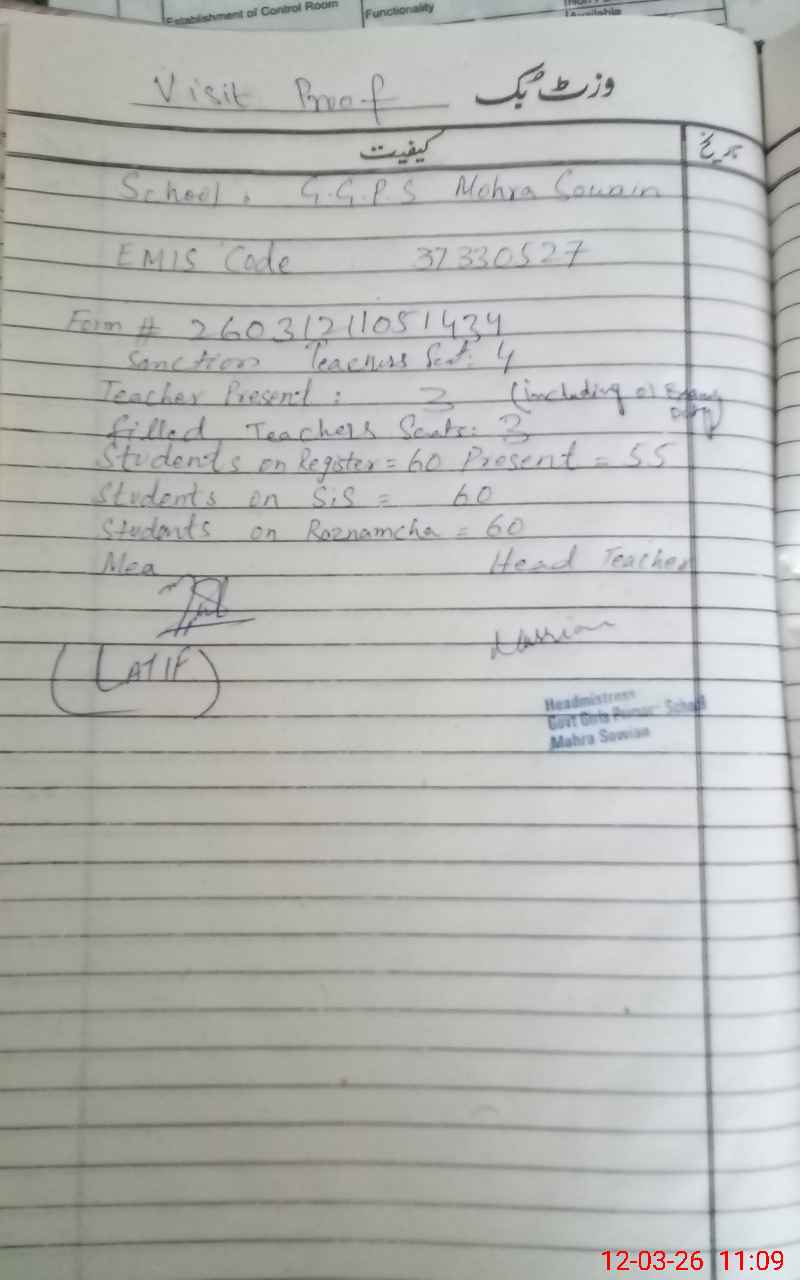 Establishment of Control Room
Functionality
Available
Visit Proof وزٹ بک
کیفیت تاریخ
School. G.G.P.S Mohra Sowain
EMIS Code 37330527
Form # 26031211051434
Sanction Teachers Seat: 4
Teacher Present: 3 (including 01 Exam Duty)
filled Teachers Seats: 3
Students on Register = 60 Present = 55
Students on SiS = 60
Students on Roznamcha = 60
Mea Head Teacher
(LATIF)
Headmistress
Govt Girls Primary School
Mohra Sowian
12-03-26 11:09